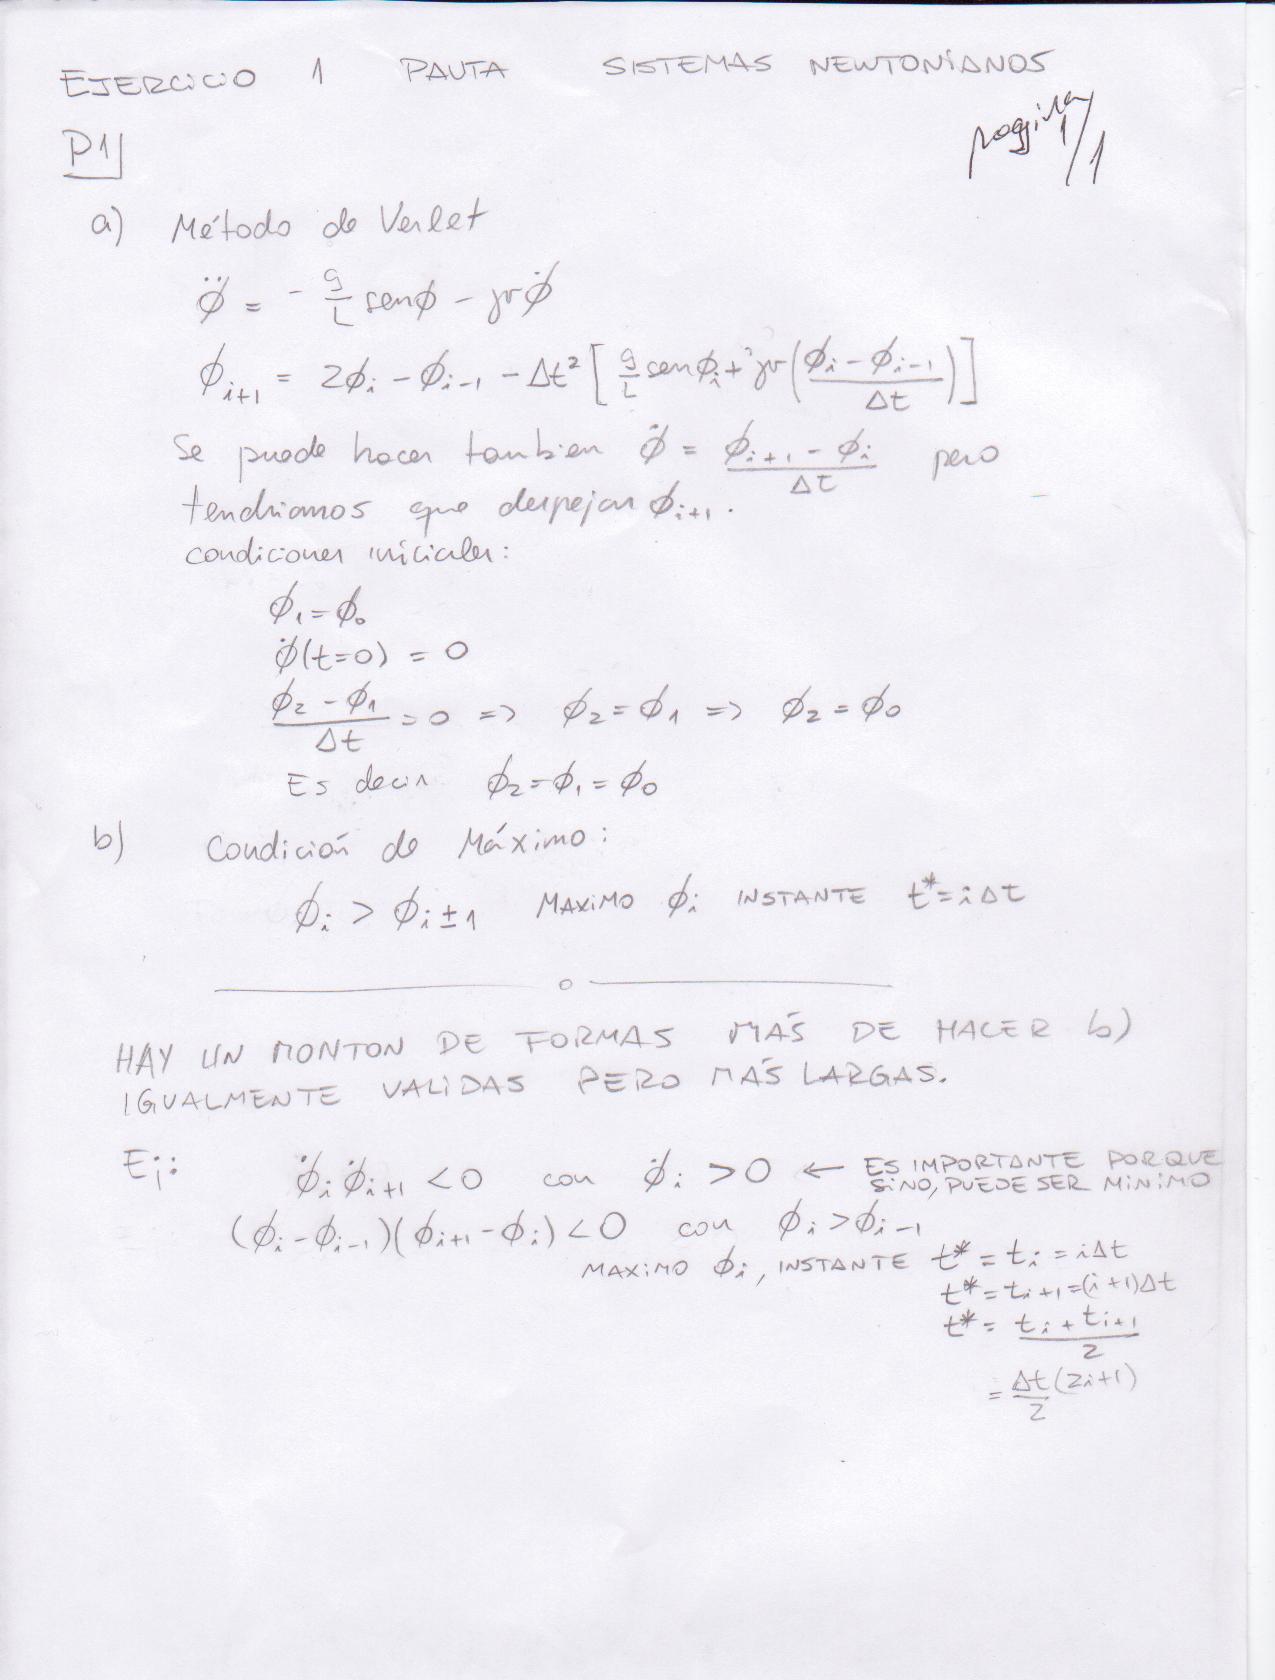 EJERCICIO 1 PAUTA SISTEMAS NEWTONIANOS
pagina 1/1
P1
a) Método de Verlet
φ̈ = - g/L senφ - γφ̇
φ_{i+1} = 2φ_i - φ_{i-1} - Δt² [ g/L senφ_i + γ( (φ_i - φ_{i-1})/Δt ) ]
Se puede hacer tambien φ̇ = (φ_{i+1} - φ_i)/Δt pero
tendriamos que despejar φ_{i+1}.
condiciones iniciales:
φ_1 = φ_0
φ̇(t=0) = 0
(φ_2 - φ_1)/Δt = 0 => φ_2 = φ_1 => φ_2 = φ_0
Es decir φ_2 = φ_1 = φ_0
b) Condición de Máximo:
φ_i > φ_{i±1} MAXIMO φ_i INSTANTE t* = iΔt
HAY UN MONTON DE FORMAS MÁS DE HACER b)
IGUALMENTE VALIDAS PERO MÁS LARGAS.
Ej: φ̇_i φ̇_{i+1} < 0 con φ̇_i > 0 ← ES IMPORTANTE PORQUE
SINO, PUEDE SER MINIMO
(φ_i - φ_{i-1})(φ_{i+1} - φ_i) < 0 con φ_i > φ_{i-1}
MAXIMO φ_i, INSTANTE t* = t_i = iΔt
t* = t_{i+1} = (i+1)Δt
t* = (t_i + t_{i+1})/2
= Δt/2 (2i+1)